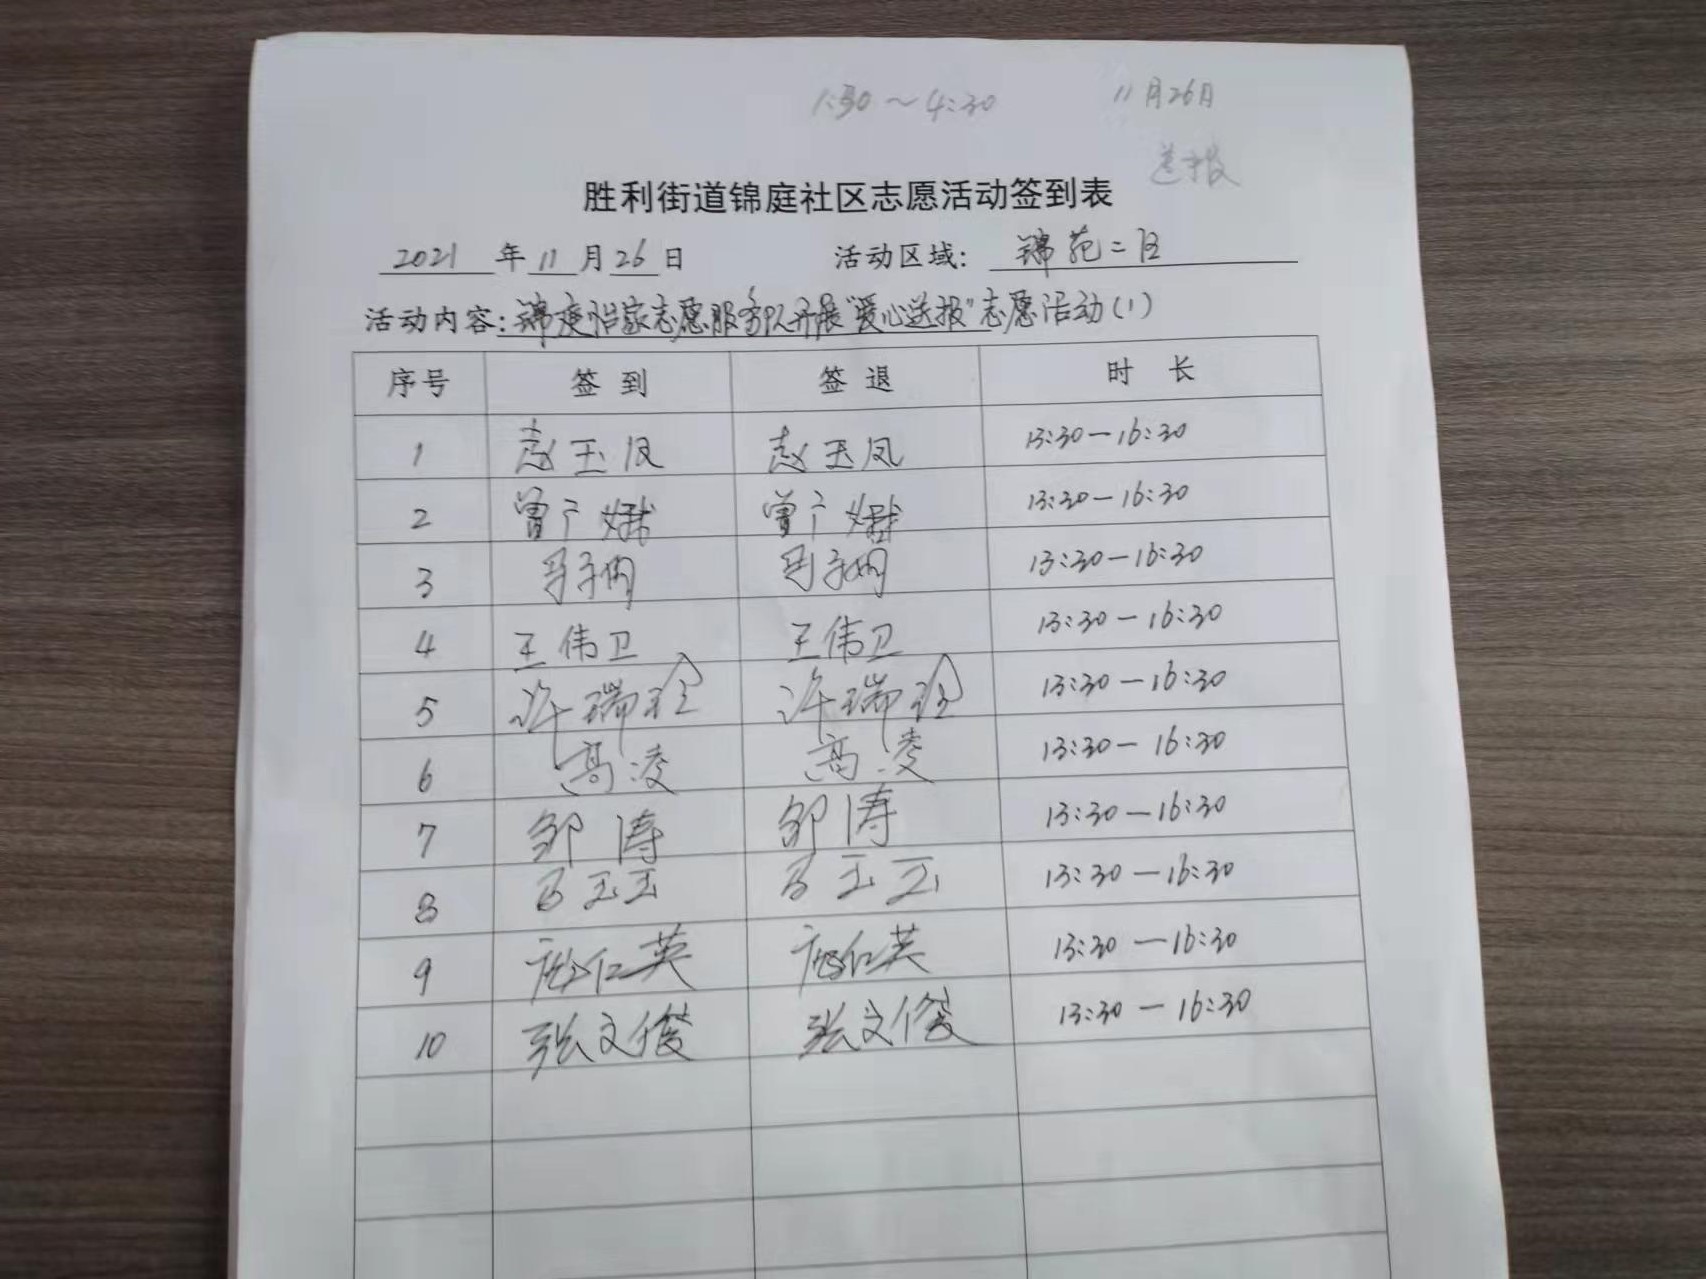 1:30～4:30 11月26日
送报
胜利街道锦庭社区志愿活动签到表
2021年11月26日 活动区域：锦苑二区
活动内容：锦庭怡家志愿服务队开展“爱心送报”志愿活动(1)
序号 签到 签退 时长
1 赵玉凤 赵玉凤 13:30—16:30
2 曾广娥 曾广娥 13:30—16:30
3 13:30—16:30
4 王伟卫 王伟卫 13:30—16:30
5 许瑞玲 许瑞玲 13:30—16:30
6 高凌 高凌 13:30—16:30
7 邹涛 邹涛 13:30—16:30
8 马玉玉 马玉玉 13:30—16:30
9 仁英 仁英 13:30—16:30
10 张文俊 张文俊 13:30—16:30